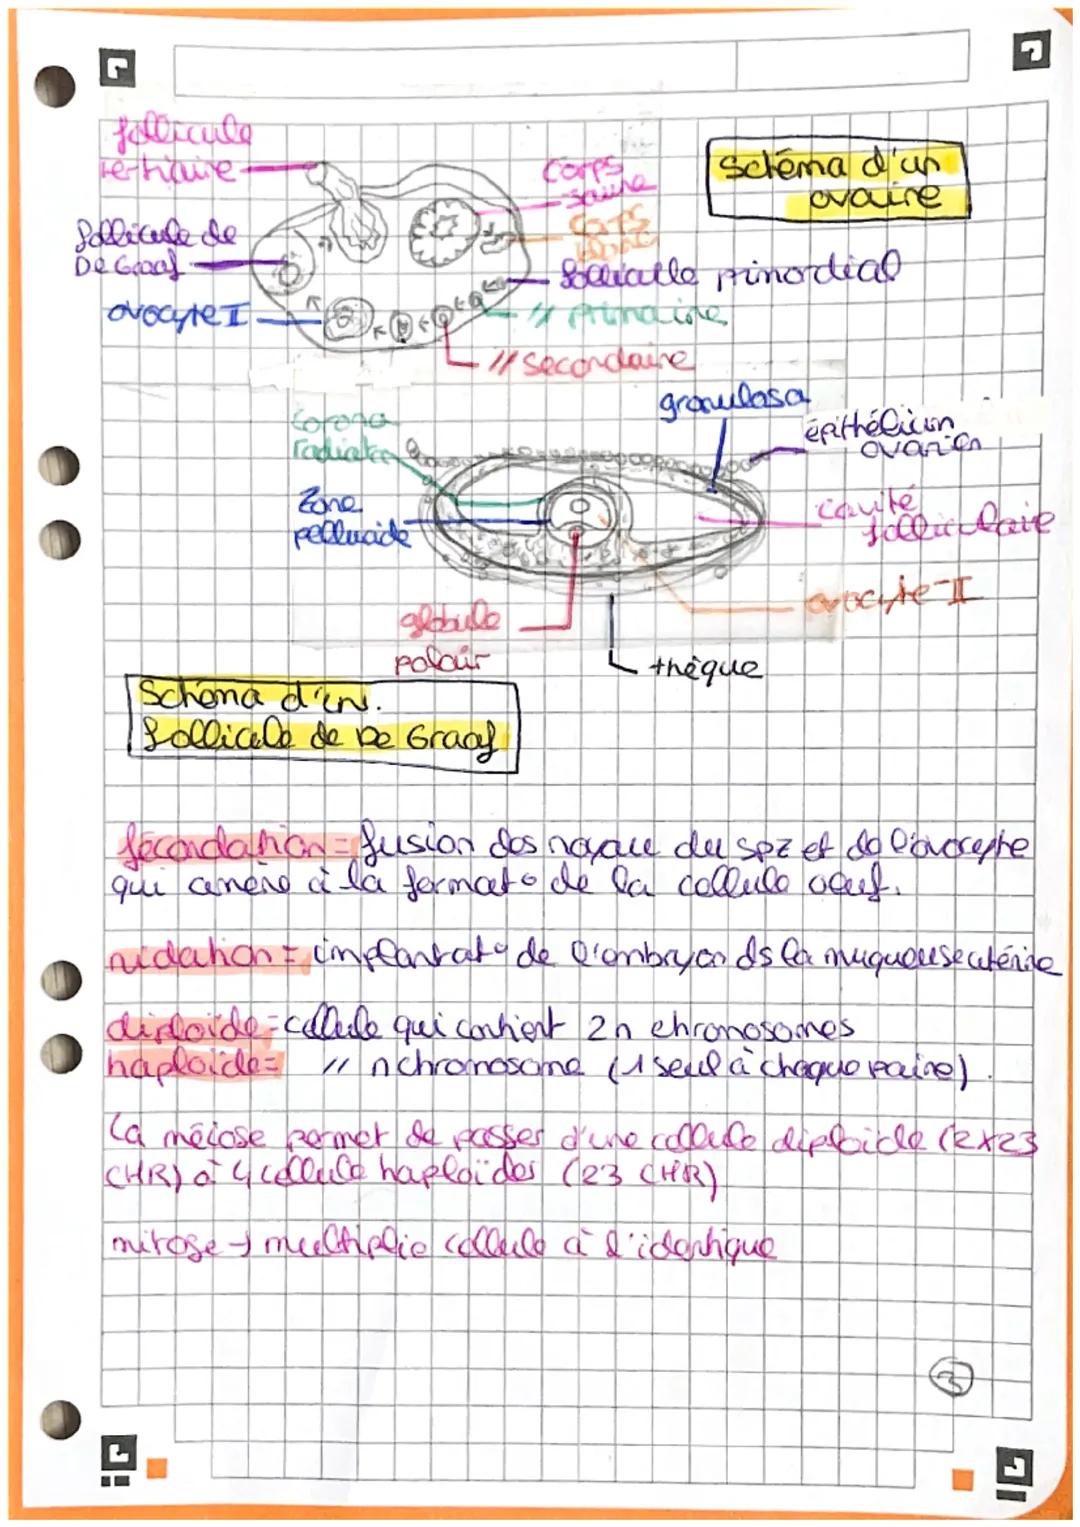 follicule
tertiaire
Schéma d'un
ovaire
corps
jaune
corps
blanc
follicule de
De Graaf
follicule primordial
ovocyte I
// primaire
// secondaire
granulosa
corona
radiata
épithélium
ovarien
Zone
pellucide
cavité
folliculaire
ovocyte II
globule
polair
thèque
Schéma d'un
follicule de De Graaf
fécondation = fusion des noyau du spz et de l'ovocyte
qui amène à la format° de la cellule oeuf.
nidation = implantat° de l'embryon ds la muqueuse utérine
diploïde = cellule qui contient 2n chromosomes
haploïde = // n chromosome (1 seul à chaque paire).
La méiose permet de passer d'une cellule diploïde (2x23
CHR) à 4 cellule haploïdes (23 CHR)
mitose → multiplie cellule à l'identique
3